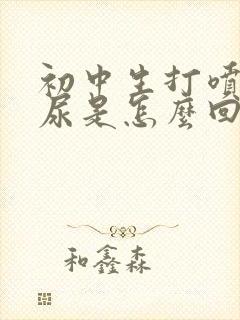 初中生打噴
尿是怎麼回
和鑫森